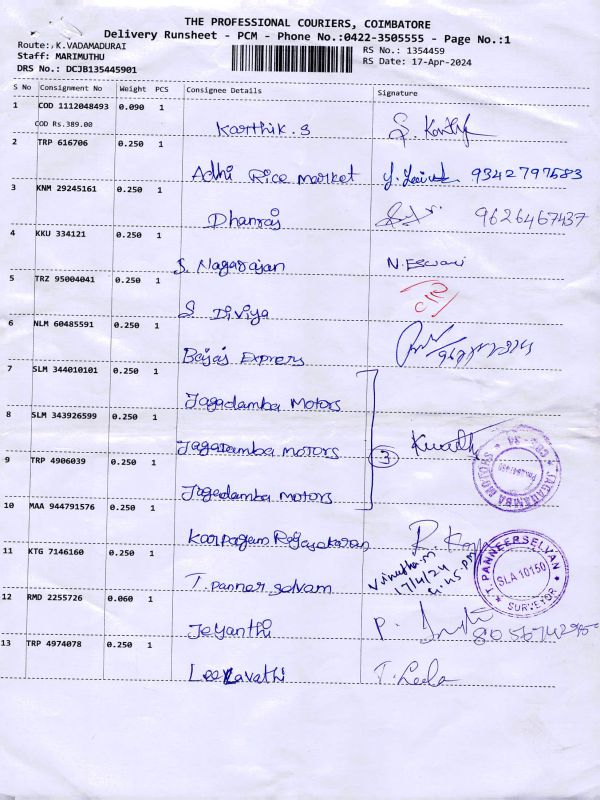 THE PROFESSIONAL COURIERS, COIMBATORE
Delivery Runsheet - PCM - Phone No.:0422-3505555 - Page No.:1
Route: K.VADAMADURAI
Staff: MARIMUTHU
DRS No.: DCJB135445901
RS No.: 1354459
RS Date: 17-Apr-2024
S No Consignment No Weight PCS Consignee Details Signature
1 COD 1112048493 0.090 1
COD Rs.389.00
Karthik. S
2 TRP 616706 0.250 1
Adhi Rice Market 9342797583
3 KNM 29245161 0.250 1
Dhanraj 9626467437
4 KKU 334121 0.250 1
S. Nagarajan N. Eswari
5 TRZ 95004041 0.250 1
S. Diviya
6 NLM 60485591 0.250 1
Bajas Express
7 SLM 344010101 0.250 1
Jagadamba Motors
8 SLM 343926599 0.250 1
Jagadamba Motors 3
9 TRP 4906039 0.250 1
Jagadamba Motors
10 MAA 944791576 0.250 1
Karpagam Rajasekaran
11 KTG 7146160 0.250 1
T. Panner selvam
Vinutha.m.
17/4/24
4:45 PM
T. PANNEERSELVAN
SLA 10150
SURVEYOR
12 RMD 2255726 0.060 1
Jeyanthi
13 TRP 4974078 0.250 1
Leelavathi T. Leela